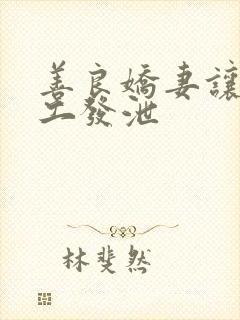 善良嬌妻讓
工發泄
林斐然